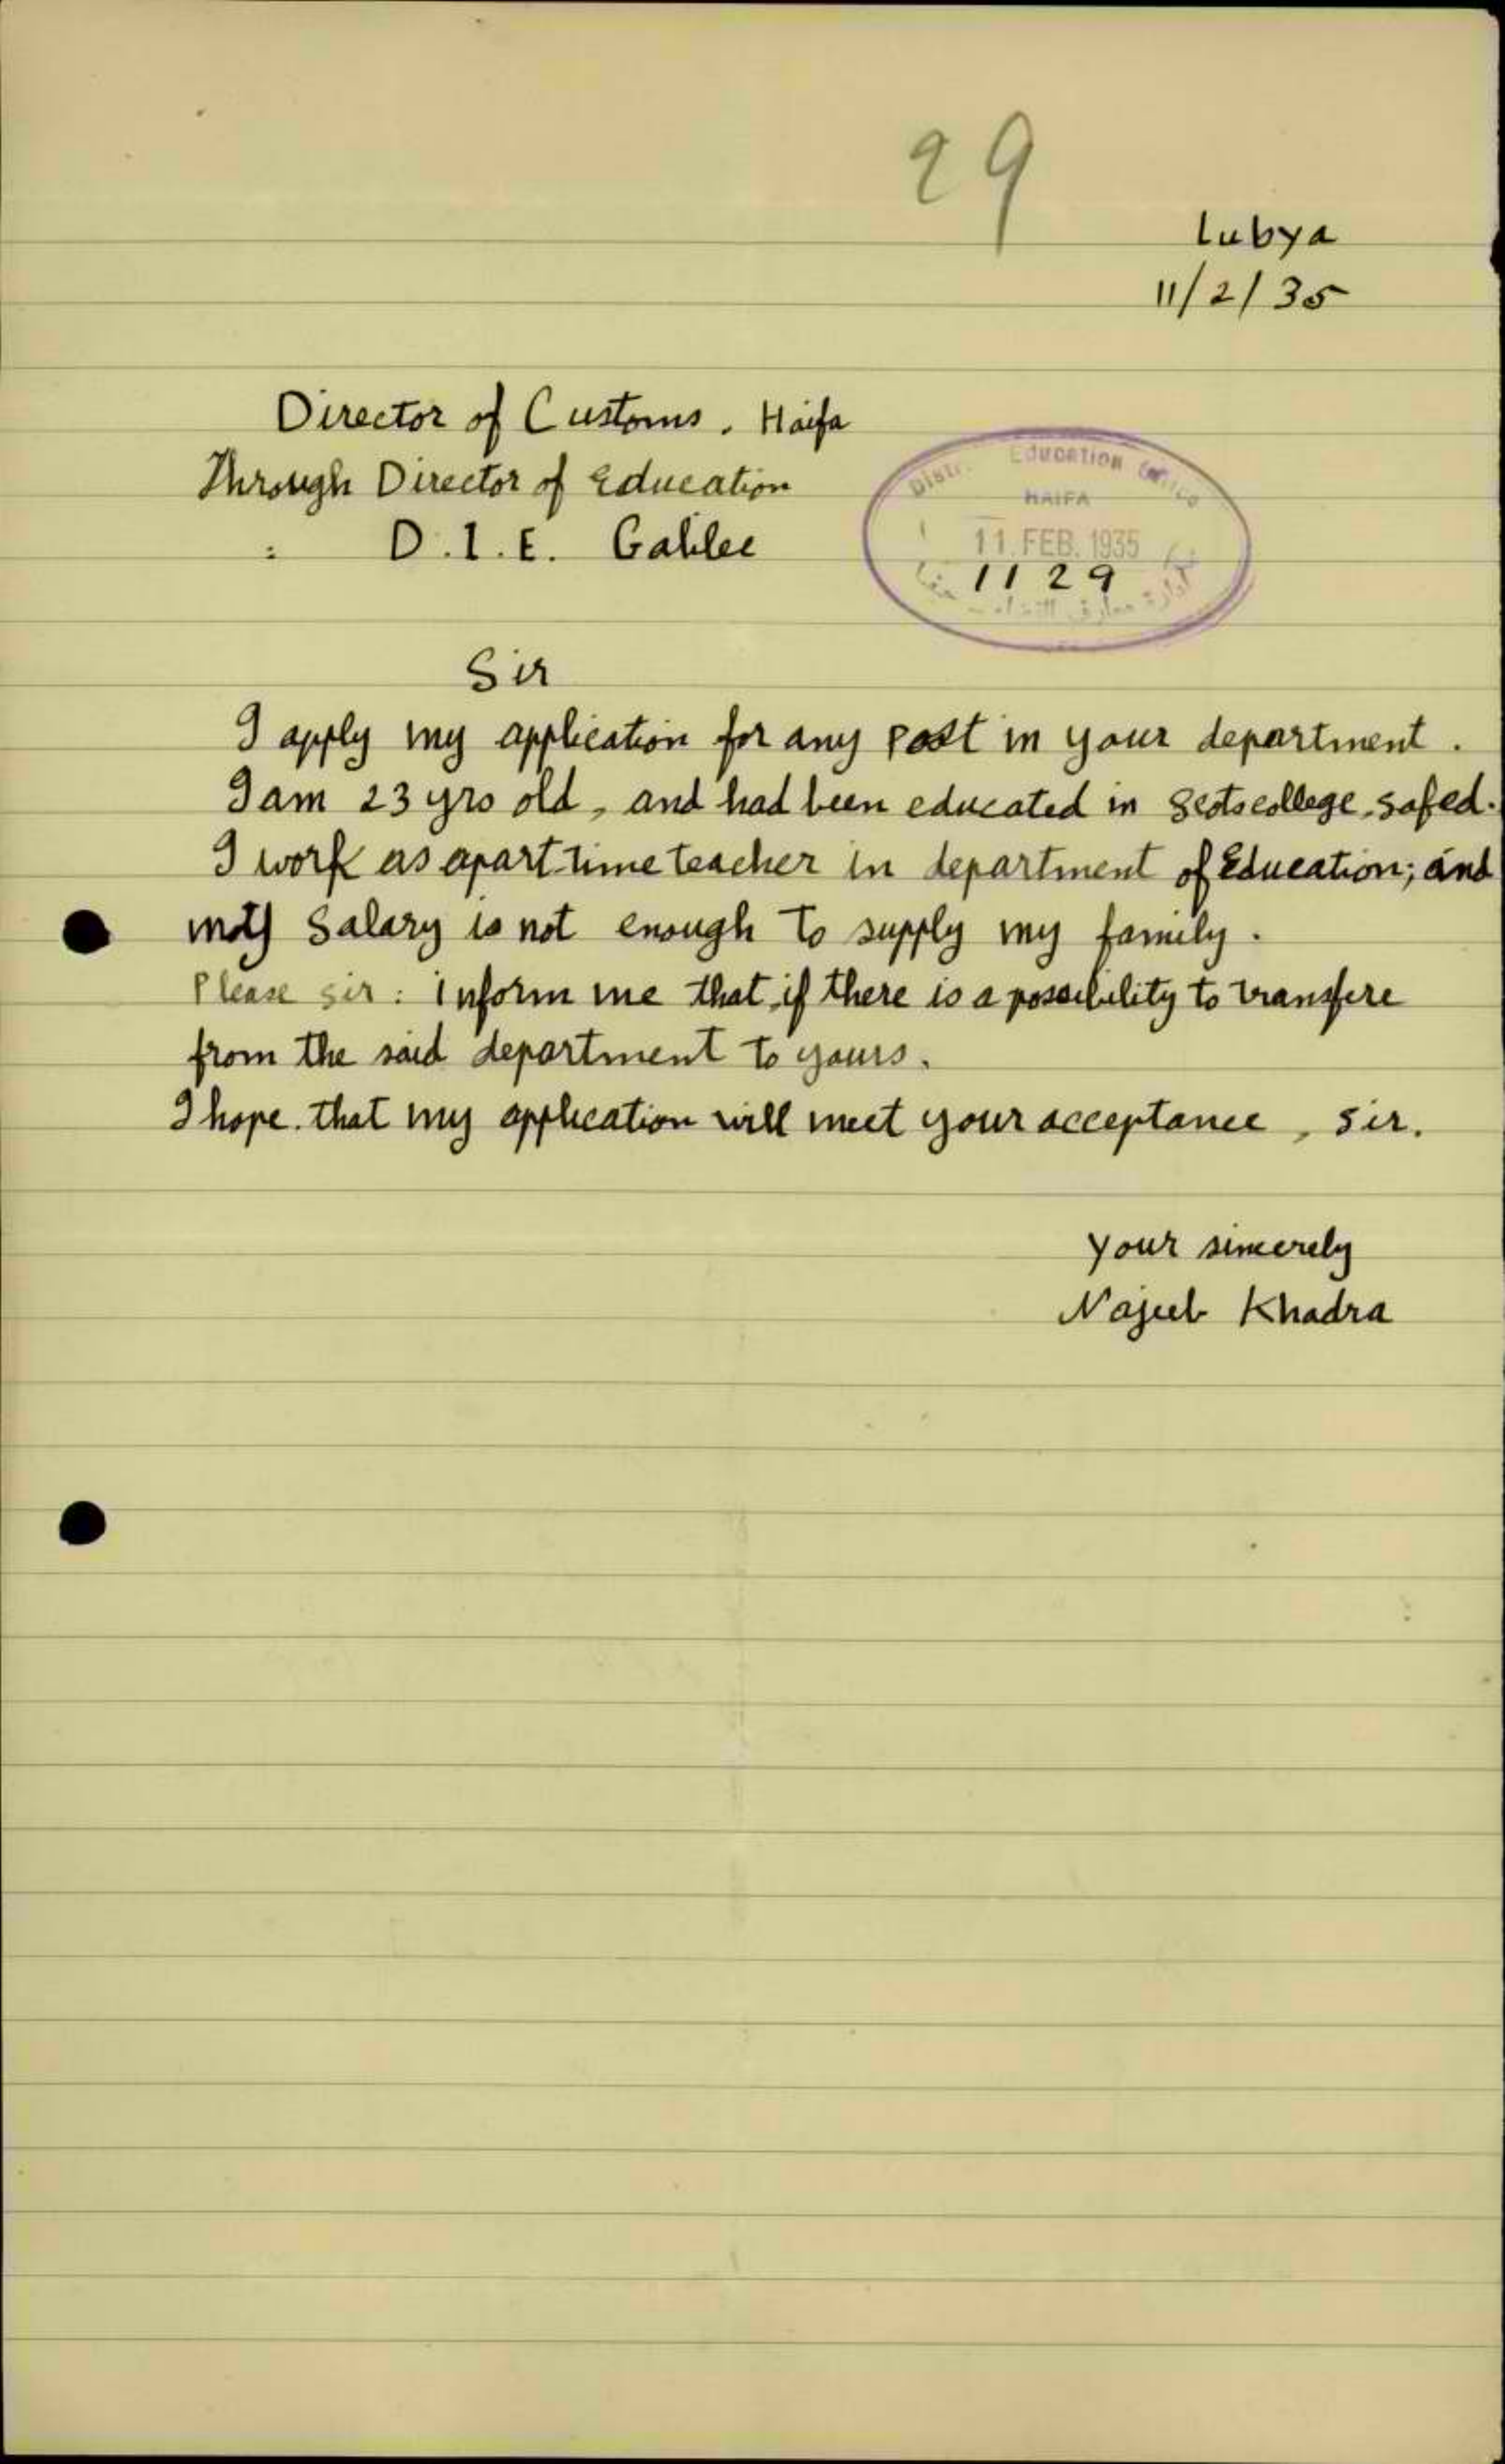 29
Lubya
11/2/35
Director of Customs. Haifa
Through Director of Education
: D.I.E. Galilee
Distr. Education Office
HAIFA
11. FEB. 1935
1129
Sir
I apply my application for any post in your department.
I am 23 yrs old, and had been educated in Scots college, Safed.
I work as a part time teacher in department of Education; and
my salary is not enough to supply my family.
Please sir: inform me that if there is a possibility to transfere
from the said department to yours.
I hope that my application will meet your acceptance, sir.
your sincerely
Najeeb Khadra